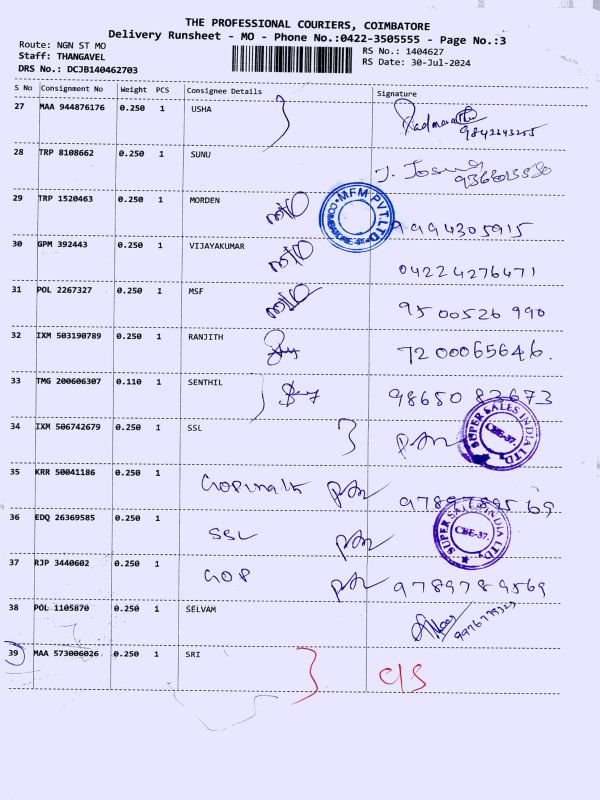 THE PROFESSIONAL COURIERS, COIMBATORE
Delivery Runsheet - MO - Phone No.:0422-3505555 - Page No.:3
Route: NGN ST MO
RS No.: 1404627
Staff: THANGAVEL
RS Date: 30-Jul-2024
DRS No.: DCJB140462703
S No Consignment No Weight PCS Consignee Details Signature
27 MAA 944876176 0.250 1 USHA
9842243255
28 TRP 8108662 0.250 1 SUNU
29 TRP 1520463 0.250 1 MORDEN MFM PVT. LTD 9994305915
30 GPM 392443 0.250 1 VIJAYAKUMAR 04224276471
31 POL 2267327 0.250 1 MSF 9500526990
32 IXM 503190789 0.250 1 RANJITH 7200065646.
33 TMG 200606307 0.110 1 SENTHIL 98650 82673
34 IXM 506742679 0.250 1 SSL SUPER SALES INDIA LTD. CBE-37.
35 KRR 50041186 0.250 1 Gopinath 9789789569
36 EDQ 26369585 0.250 1 SSL SUPER SALES INDIA LTD. CBE-37.
37 RJP 3440602 0.250 1 GOP 9789789569
38 POL 1105870 0.250 1 SELVAM
39 MAA 573006026 0.250 1 SRI C/S